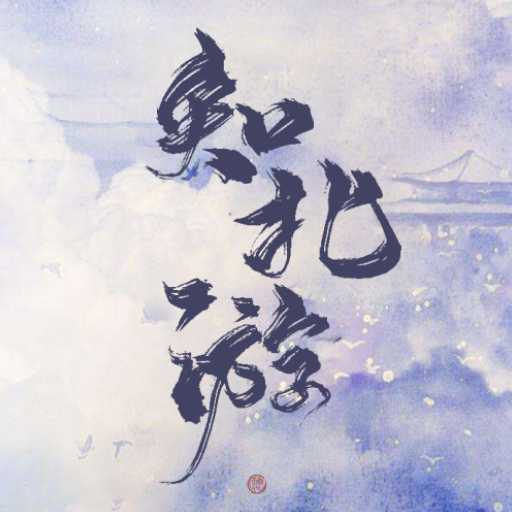 知北游